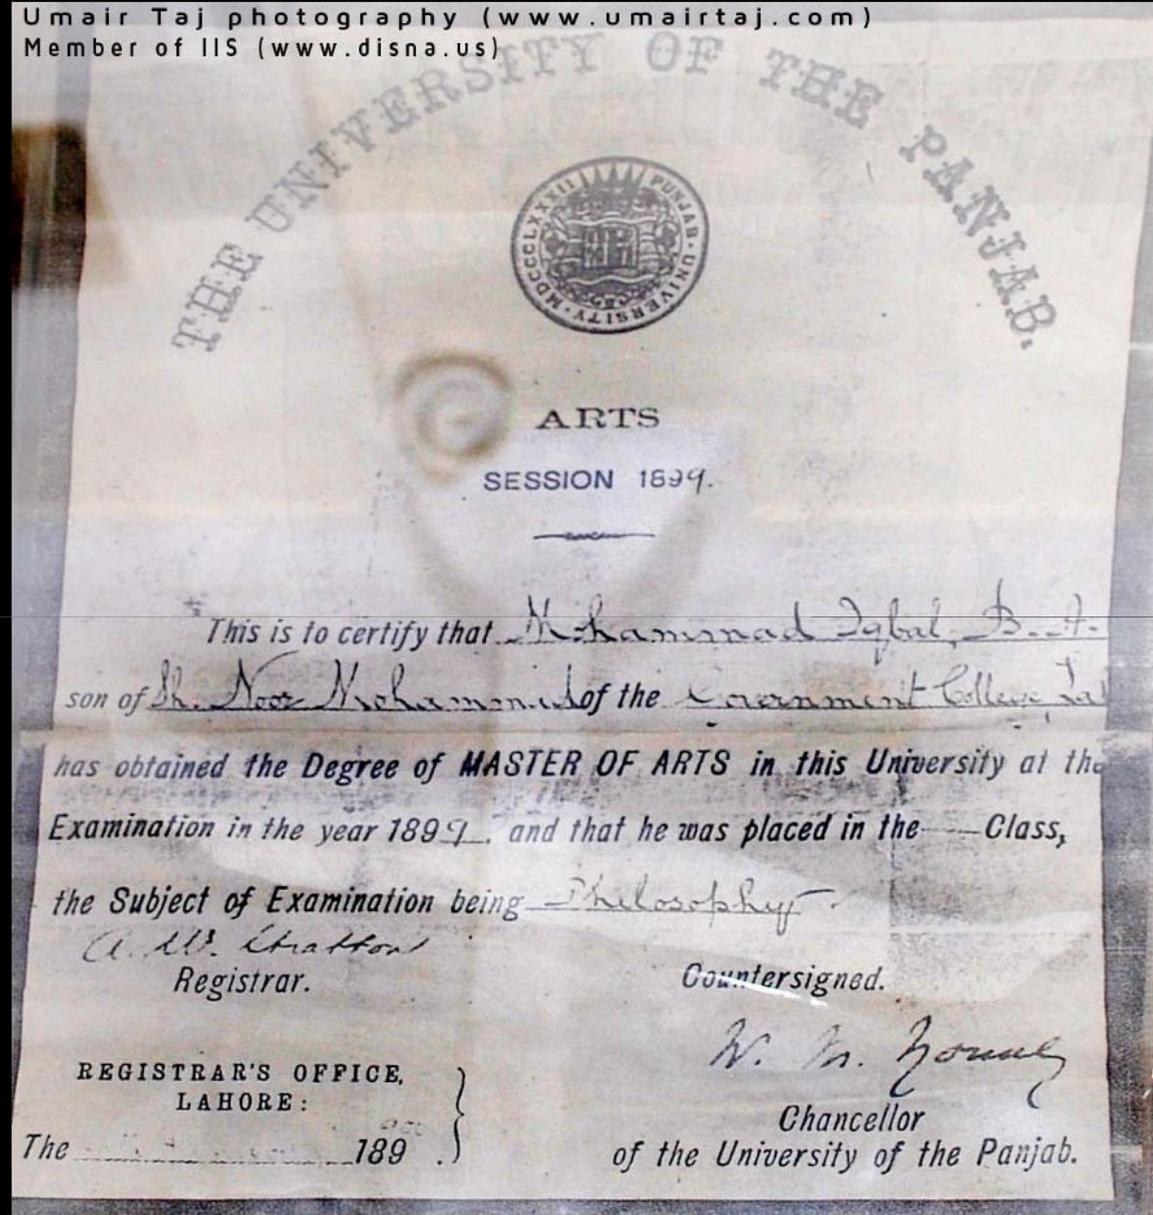 Umair Taj photography (www.umairtaj.com)
Member of IIS (www.disna.us)
THE UNIVERSITY OF THE PANJAB.
PUNJAB · UNIVERSITY · MDCCCLXXXII
ARTS
SESSION 1899.
This is to certify that Mohammad Iqbal, B. A.
son of Sh. Noor Mohammad of the Government College, Lah
has obtained the Degree of MASTER OF ARTS in this University at the
Examination in the year 1899. and that he was placed in the — Class,
the Subject of Examination being Philosophy.
A. W. Stratton
Registrar.
Countersigned.
W. M. Young
REGISTRAR'S OFFICE,
LAHORE:
The 189 .
Chancellor
of the University of the Panjab.